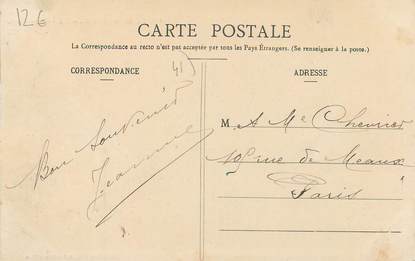 12€
CARTE POSTALE
La Correspondance au recto n'est pas acceptée par tous les Pays Étrangers. (Se renseigner à la poste.)
CORRESPONDANCE
41
Bon Souvenir
Jeanne
ADRESSE
M. A Me Chevrier
rue de Meaux
Paris